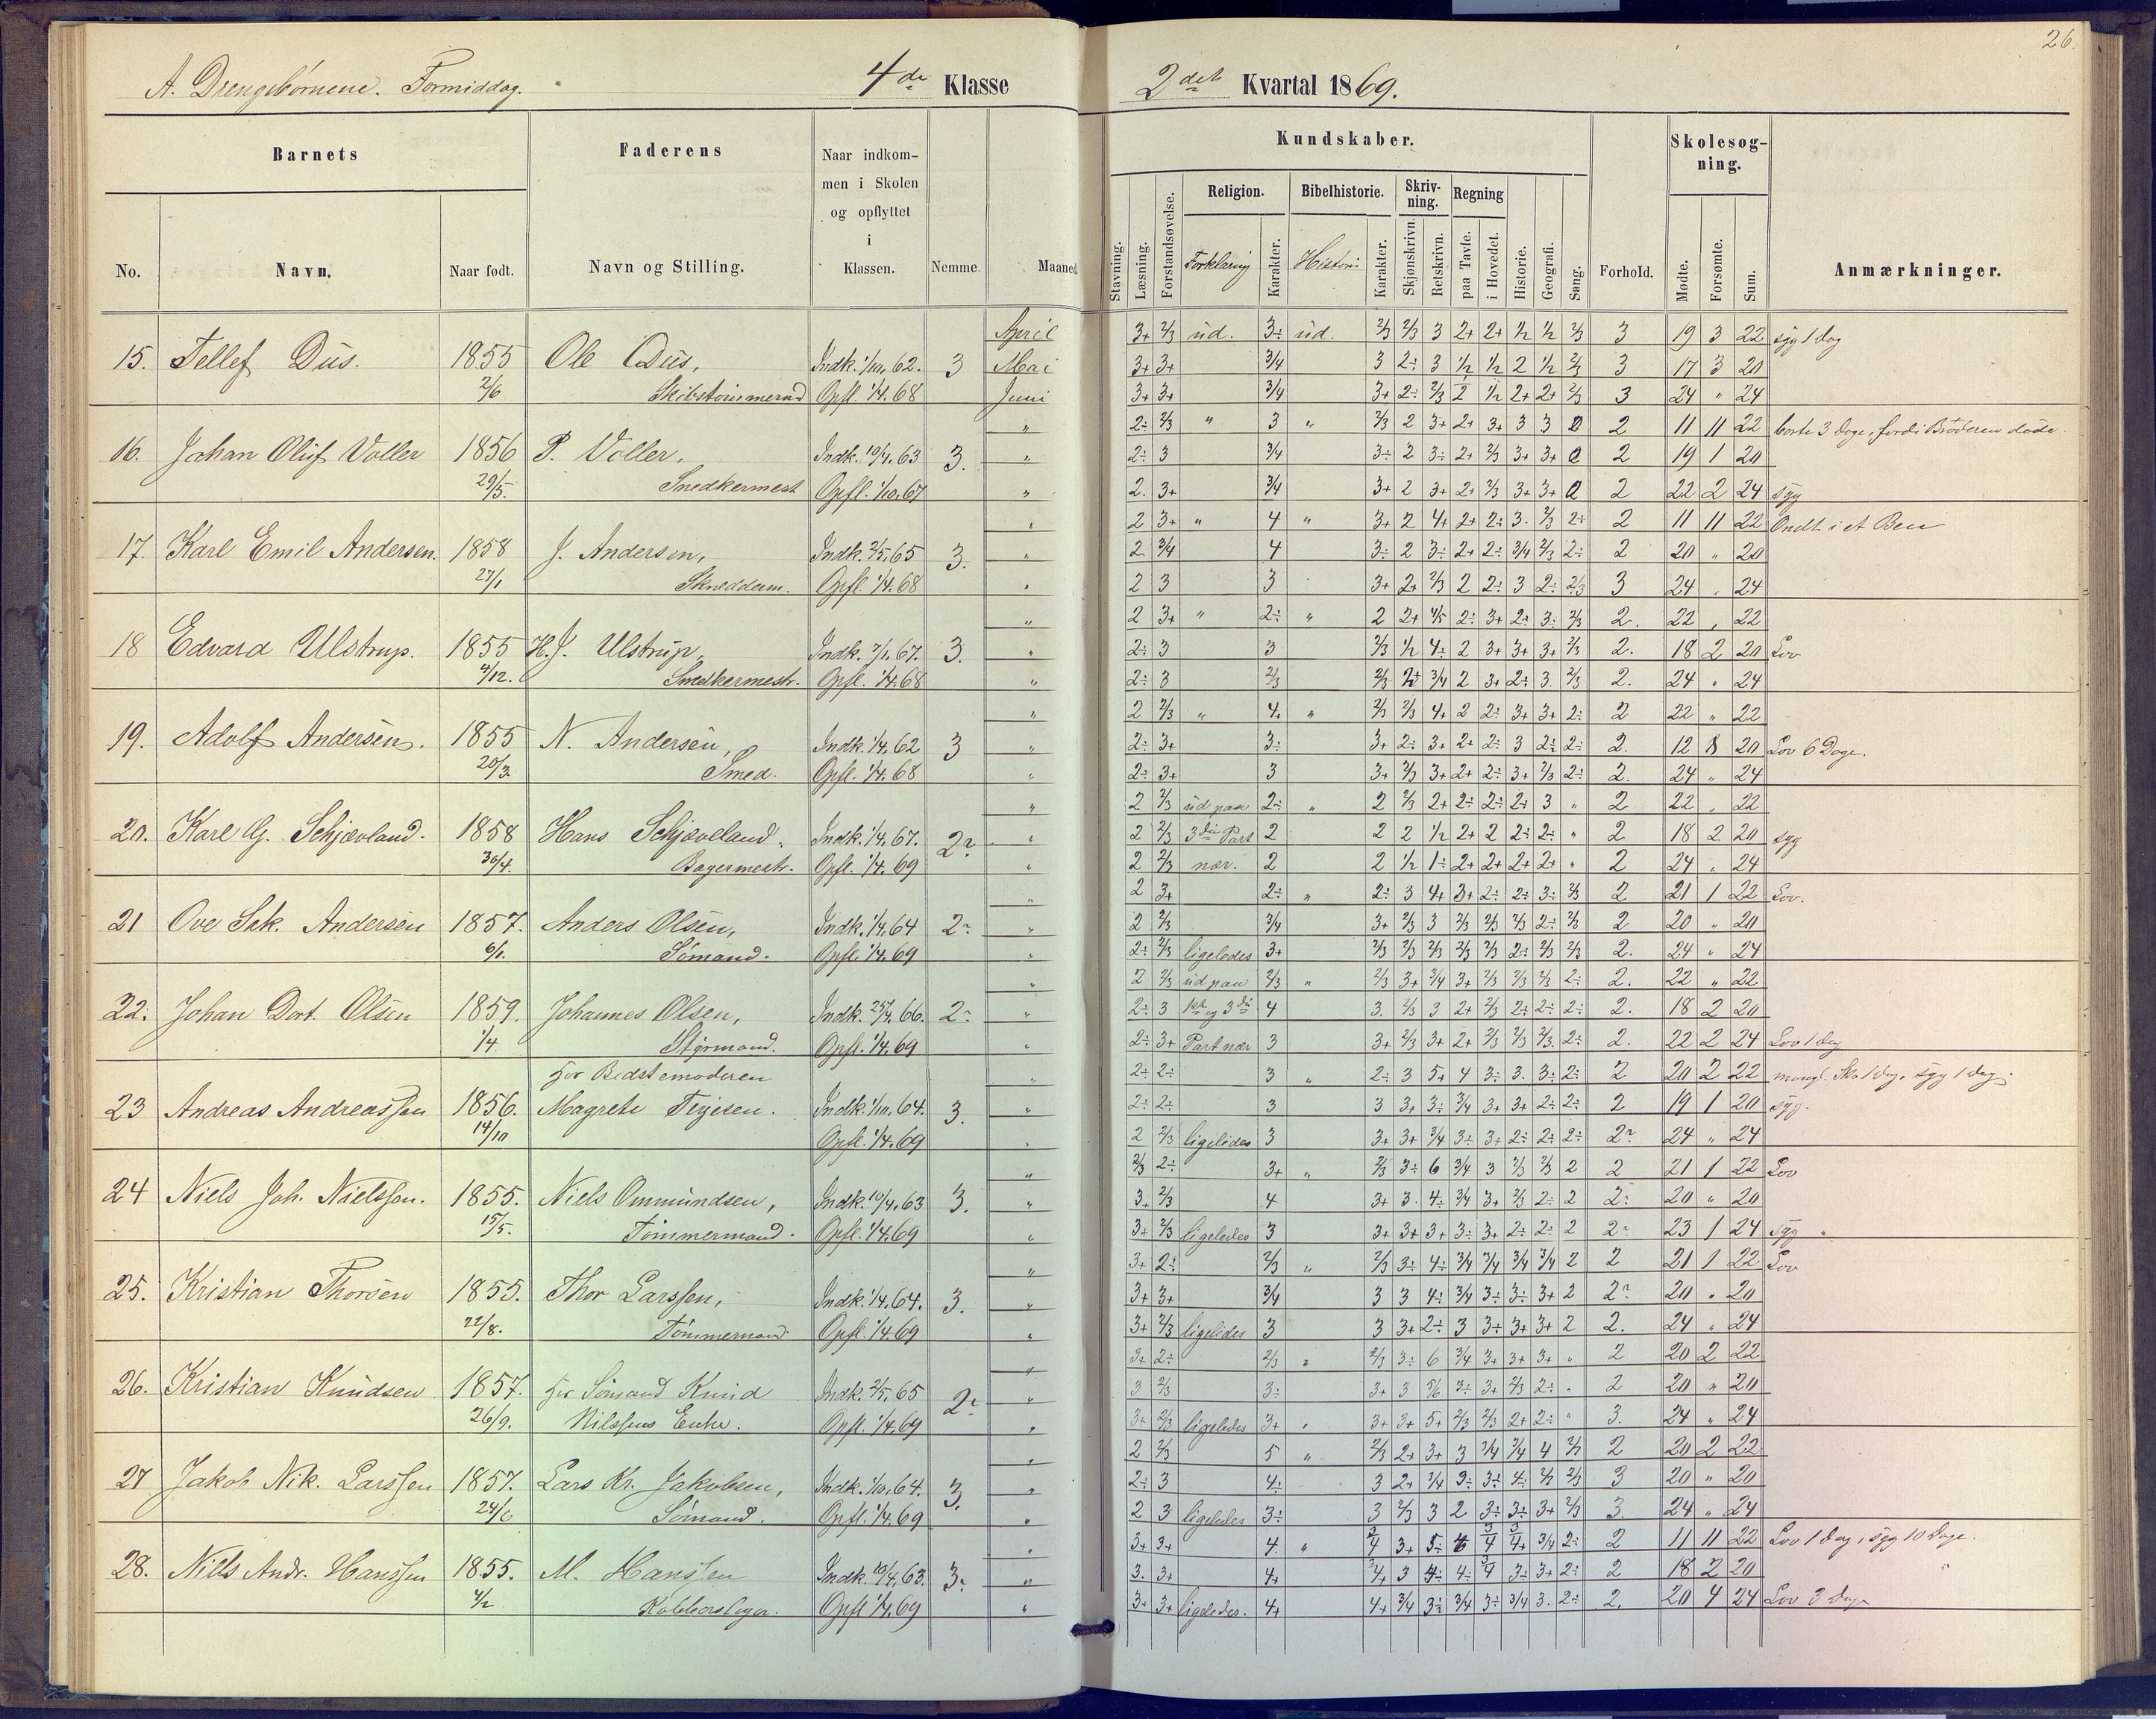 26.
A. Drengebörnene. Formiddag.
4de Klasse
2det Kvartal 1869.
Barnets
Faderens
Naar indkom-
men i Skolen
og opflyttet
i
Klassen.
No.
Navn.
Naar født.
Navn og Stilling.
Nemme.
Maaned
Kundskaber.
Stavning.
Læsning.
Forstandsøvelse.
Religion.
Forklaring
Karakter.
Bibelhistorie.
Histori
Karakter.
Skriv-
ning.
Skjønskrivn.
Retskrivn.
Regning
paa Tavle.
i Hovedet.
Historie.
Geografi.
Sang.
Forhold.
Skolesøg-
ning.
Mødte.
Forsømte.
Sum.
Anmærkninger.
April 3+ 2/3 ud. 3÷ ud. 2/3 2/3 3 2+ 2+ 1/2 1/2 2/3 3 19 3 22 syg 1 Dag
15. Tellef Dus. 1855 Ole Dus, Indk. 1/10, 62. 3 Mai 3+ 3+ 3/4 3 2÷ 3 1/2 1/2 2 1/2 2/3 3 17 3 20
2/6 Opfl. 1/4. 68 Juni 3+ 3+ 3/4 3+ 2÷ 2/3 2 1/2 2+ 2+ 2/3 3 24 " 24
" 2÷ 2/3 " 3 " 2/3 2 3+ 2+ 3+ 3 3 0 2 11 11 22 borte 3 Dage, fordi Broderen døde.
16. Johan Oluf Voller 1856 P. Voller, Indk. 10/4. 63 3. " 2÷ 3 3/4 3÷ 2 3÷ 2+ 2/3 3+ 3+ 0 2 19 1 20
29/5. Snedkermest Opfl. 1/10. 67 " 2. 3+ 3/4 3+ 2 3+ 2+ 2/3 3+ 3+ 0 2 22 2 24 syg
" 2 3+ " 4 " 3+ 2 4+ 2+ 2÷ 3. 2/3 2÷ 2 11 11 22 Ondt i et Ben
17. Karl Emil Andersen. 1858 J. Andersen, Indk. 2/5. 65 3. " 2 3/4 4 3÷ 2 3÷ 2+ 2÷ 3/4 2/3 2÷ 2 20 " 20
27/1 Skrædderm. Opfl. 1/4. 68 " 2 3 3 3+ 2+ 2/3 2 2÷ 3 2÷ 2/3 3 24 " 24
" 2 3+ " 2÷ " 2 2+ 4/5 2÷ 3+ 2÷ 3÷ 2/3 2. 22 " 22
18 Edvard Ulstrup. 1855 H. J. Ulstrup, Indk. 7/1. 67. 3. " 2÷ 3 3 2/3 1/2 4÷ 2 3+ 3+ 3+ 2/3 2. 18 2 20 Lov
4/12. Smedkermestr. Opfl. 1/4. 68 " 2÷ 3 2/3 2/3 2+ 3/4 2 3+ 2÷ 3. 2/3 2. 24 " 24
" 2 2/3 " 4+ " 2/3 2/3 4+ 2 2÷ 3+ 3+ 2÷ 2 22 " 22
19. Adolf Andersen. 1855 N. Andersen, Indk. 1/4. 62 3 " 2÷ 3+ 3÷ 3+ 2÷ 3+ 2+ 2÷ 3 2÷ 2÷ 2. 12 8 20 Lov 6 Dage.
20/3. Smed. Opfl. 1/4. 68 " 2÷ 3+ 3 3+ 2/3 3+ 2+ 2÷ 3+ 2/3 2÷ 2. 24 " 24
" 2 2/3 ud paa 2÷ " 2 2/3 2+ 2÷ 2÷ 2+ 3 " 2 22 " 22
20. Karl G. Schjævland. 1858 Hans Schjæveland. Indk. 1/4. 67. 2? " 2 2/3 3die Part 2 2 2 1/2 2+ 2 2÷ 2÷ " 2 18 2 20 syg
30/4. Bagermestr. Opfl. 1/4. 69 " 2 2/3 nær. 2 2 1/2 1÷ 2+ 2+ 2+ 2+ " 2 24 " 24
" 2 3+ 2÷ " 2÷ 3 4+ 3+ 2÷ 2÷ 3÷ 2/3 2. 21 1 22 Lov.
21 Ove Sek. Andersen 1857. Anders Olsen, Indk. 1/4. 64 2? " 2 2/3 3/4 3+ 2/3 3 2/3 2/3 2/3 2÷ 2/3 2 20 " 20
6/1. Sömand. Opfl. 1/4. 69 " 2÷ 2/3 ligeledes 3+ 2/3 2/3 2/3 2/3 2/3 2÷ 2/3 2/3 2. 24 " 24
" 2 2/3 ud paa 2/3 " 2/3 3+ 3/4 3+ 2/3 2/3 2/3 2÷ 2. 22 " 22
22. Johan Dort. Olsen 1859. Johannes Olsen, Indk. 25/4. 66. 2? " 2÷ 3 1ste og 3die 4 3. 2/3 3 2+ 2/3 2÷ 2÷ 2÷ 2. 18 2 20
1/4. Styrmand. Opfl. 1/4. 69 " 2÷ 3+ Part nær 3 3+ 2/3 3+ 2+ 2/3 2/3 2/3. 2÷ 2. 22 2 24 Lov 1 Dag
For Bedstemoderen " 2÷ 2÷ 3 " 2÷ 3 5+ 4 3÷ 3. 3÷ 2÷ 2 20 2 22 mangl. Sko 1 Dag, syg 1 Dag.
23 Andreas Andreassen 1856. Magrete Terjesen. Indk. 1/10. 64. 3. " 2÷ 2÷ 3 3 3+ 3÷ 3/4 3+ 3+ 2÷ 2÷ 2 19 1 20 syg.
14/10 Opfl. 1/4. 69 " 2 2/3 ligeledes 3 3+ 3+ 3/4 3÷ 3+ 2÷ 2÷ 2÷ 2? 24 " 24
" 2/3 2÷ 3+ " 2/3 3÷ 6 3/4 3 2/3 2/3 2 2 21 1 22 Lov
24 Niels Joh. Nielssen. 1855. Niels Ommundsen, Indk. 10/4. 63 3. " 3. 2/3 4 3+ 3. 4÷ 3/4 3+ 2/3 2÷ 2 2÷ 20 " 20
15/5. Tömmermand. Opfl. 1/4. 69 " 3+ 2/3 ligeledes 3 3+ 3+ 3+ 3÷ 3+ 2÷ 2÷ 2 2? 23 1 24 syg "
" 3+ 2÷ 2/3 " 2/3 3÷ 4÷ 3/4 3/4 3/4 3/4 2 2 21 1 22 Lov
25. Kristian Thorsen 1855. Thor Larssen, Indk. 1/4. 64. 3. " 3+ 3+ 3/4 3 3 4÷ 3/4 3÷ 3÷ 3+ 2 2? 20 " 20
22/8. Tömmermand Opfl. 1/4. 69 " 3+ 2/3 ligeledes 3 3 3+ 2÷ 3 3÷ 3+ 3+ 2 2. 24 " 24
" 3+ 2÷ 2/3 " 2/3 3÷ 6 3/4 3+ 3+ 3+ " 2 20 2 22
26. Kristian Knudsen 1857. For Sömand Knud Indk. 2/5. 65 2? " 3 2/3 3÷ 3+ 3 5/6 3÷ 3+ 2/3 2÷ " 2 20 " 20
26/9. Nilssens Enke. Opfl. 1/4. 69 " 3+ 2/3 ligeledes 3+ " 3+ 3+ 5+ 2/3 2/3 2+ 2÷ " 3. 24 " 24
" 2 2/3 5 " 2/3 2+ 3+ 3 3/4 3/4 4 2/3 2 20 2 22
27 Jakob Nik. Larssen 1857. Lars Kr. Jakobsen, Indk. 1/10. 64. 3. " 2÷ 3 4÷ 3 2+ 3/4 3÷ 3÷ 4÷ 2/3 2/3 3 20 " 20
24/6 Sömand. Opfl. 1/4. 69 " 2 3 ligeledes 3÷ 3 2/3 3 2 3÷ 3÷ 3+ 2/3 3. 24 " 24
" 3+ 3+ 4. " 3/4 3+ 5÷ 4 3/4 4+ 3/4 2÷ 2 11 11 22 Lov 1 Dag, syg 10 Dage.
28. Niels Andr. Hanssen 1855. M. Hanssen Indk. 10/4. 63. 3? " 3. 3+ 4+ 3/4 3 4÷ 4÷ 3/4 3÷ 3+ 2÷ 2 18 2 20 "
4/2 Opfl 1/4. 69 " 3+ 3+ ligeledes. 4+ 4+ 3/4 3÷ 3/4 3÷ 3/4 3. 2÷ 2. 20 4 24 Lov 3 Dage